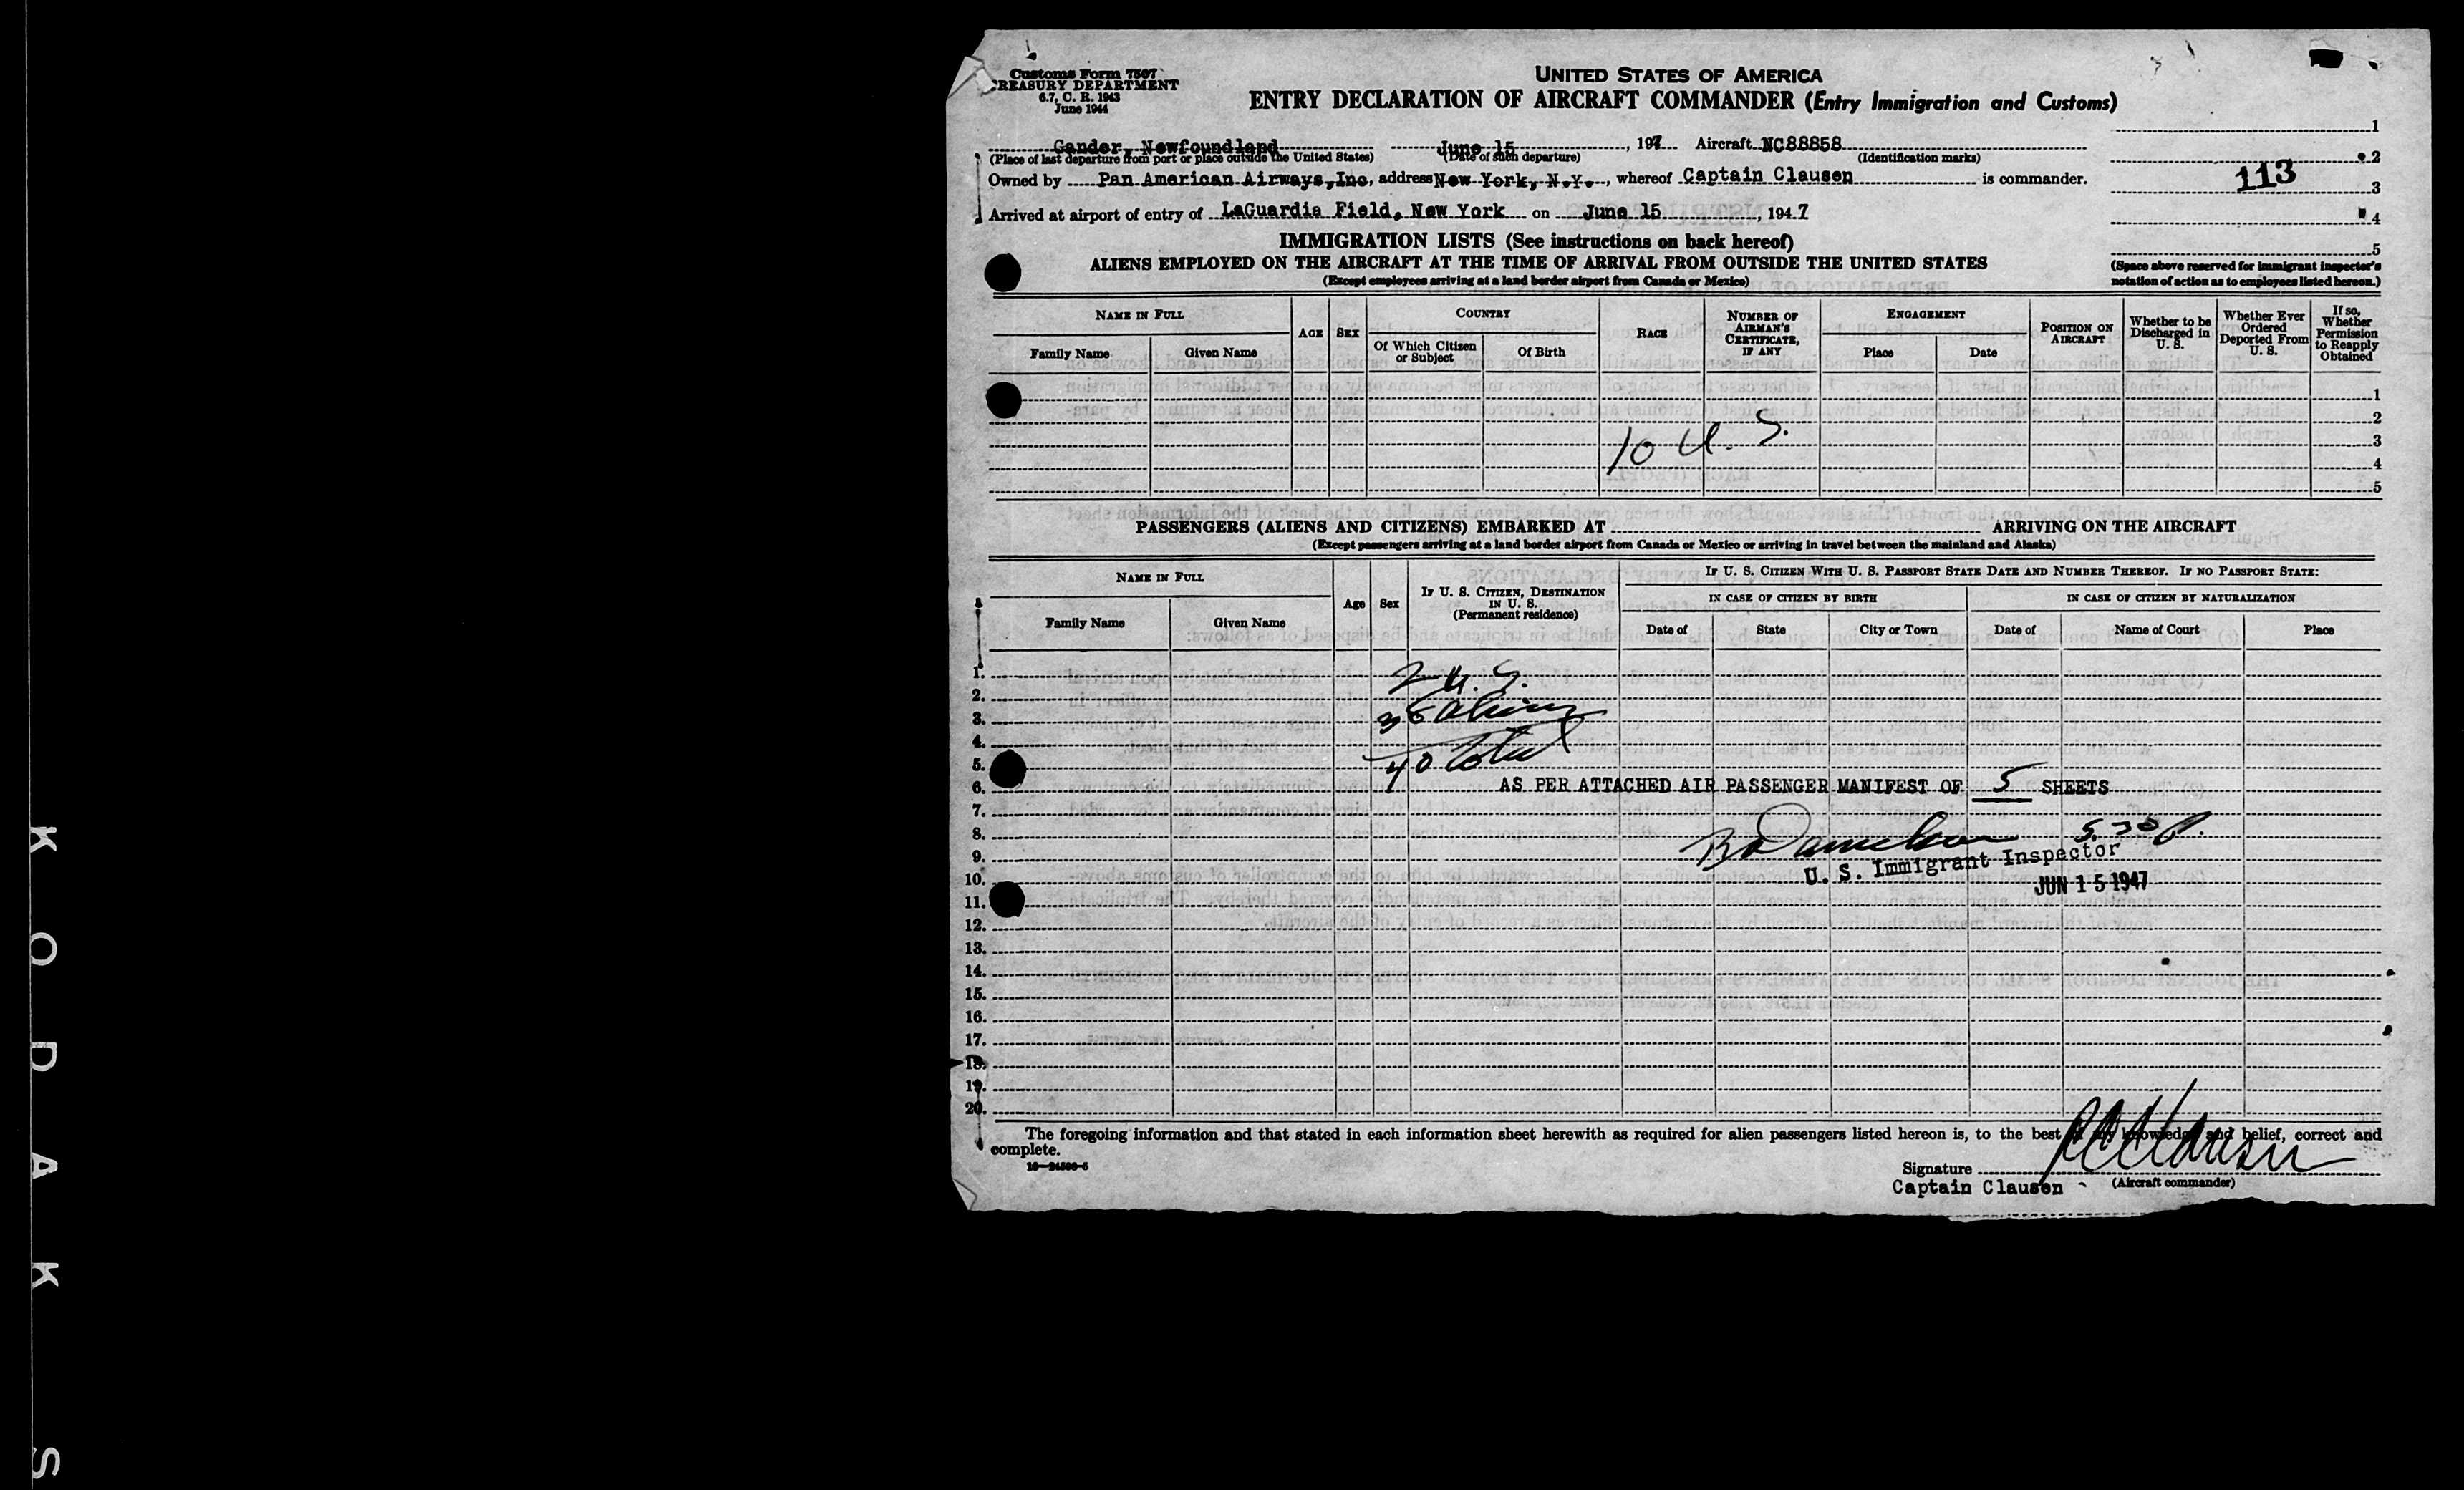 Customs Form 7507
TREASURY DEPARTMENT
6.7, C. R. 1943
June 1944
UNITED STATES OF AMERICA
ENTRY DECLARATION OF AIRCRAFT COMMANDER (Entry Immigration and Customs)
Gander, Newfoundland June 15, 1947 Aircraft NC88858
(Place of last departure from port or place outside the United States) (Date of such departure) (Identification marks)
Owned by Pan American Airways, Inc, address New York, N.Y., whereof Captain Clausen is commander.
Arrived at airport of entry of LaGuardia Field, New York on June 15, 1947
1
2
113
3
4
5
(Space above reserved for immigrant inspector's
notation of action as to employees listed hereon.)
IMMIGRATION LISTS (See instructions on back hereof)
ALIENS EMPLOYED ON THE AIRCRAFT AT THE TIME OF ARRIVAL FROM OUTSIDE THE UNITED STATES
(Except employees arriving at a land border airport from Canada or Mexico)
NAME IN FULL
Family Name
Given Name
AGE
SEX
COUNTRY
Of Which Citizen or Subject
Of Birth
RACE
NUMBER OF AIRMAN'S CERTIFICATE, IF ANY
ENGAGEMENT
Place
Date
POSITION ON AIRCRAFT
Whether to be Discharged in U. S.
Whether Ever Ordered Deported From U. S.
If so, Whether Permission to Reapply Obtained
1
2
3
4
5
10 U. S.
PASSENGERS (ALIENS AND CITIZENS) EMBARKED AT ARRIVING ON THE AIRCRAFT
(Except passengers arriving at a land border airport from Canada or Mexico or arriving in travel between the mainland and Alaska)
NAME IN FULL
Family Name
Given Name
Age
Sex
IF U. S. CITIZEN, DESTINATION IN U. S.
(Permanent residence)
IF U. S. CITIZEN WITH U. S. PASSPORT STATE DATE AND NUMBER THEREOF. IF NO PASSPORT STATE:
IN CASE OF CITIZEN BY BIRTH
IN CASE OF CITIZEN BY NATURALIZATION
Date of
State
City or Town
Date of
Name of Court
Place
1.
2 U. S.
2.
3.
38 Aliens
4.
5.
40 Total
6.
AS PER ATTACHED AIR PASSENGER MANIFEST OF 5 SHEETS
7.
8.
5.30 P.
9.
U. S. Immigrant Inspector
10.
JUN 15 1947
11.
12.
13.
14.
15.
16.
17.
18.
19.
20.
The foregoing information and that stated in each information sheet herewith as required for alien passengers listed hereon is, to the best of my knowledge and belief, correct and
complete.
Signature
Captain Clausen (Aircraft commander)
KODAK S